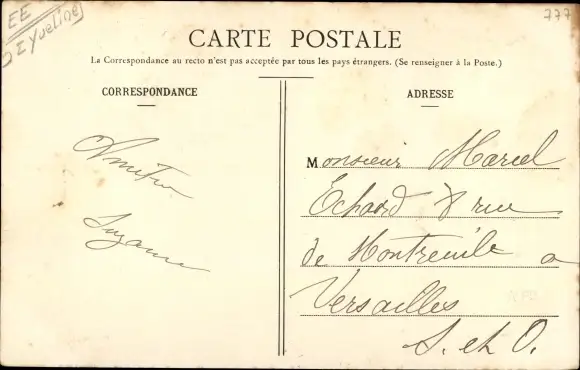 EE
(Yvelines)
777
CARTE POSTALE
La Correspondance au recto n'est pas acceptée par tous les pays étrangers. (Se renseigner à la Poste.)
CORRESPONDANCE
Suzanne
ADRESSE
Monsieur Marcel
Echard 8 rue
de Montreuil a
Versailles
S. et O.